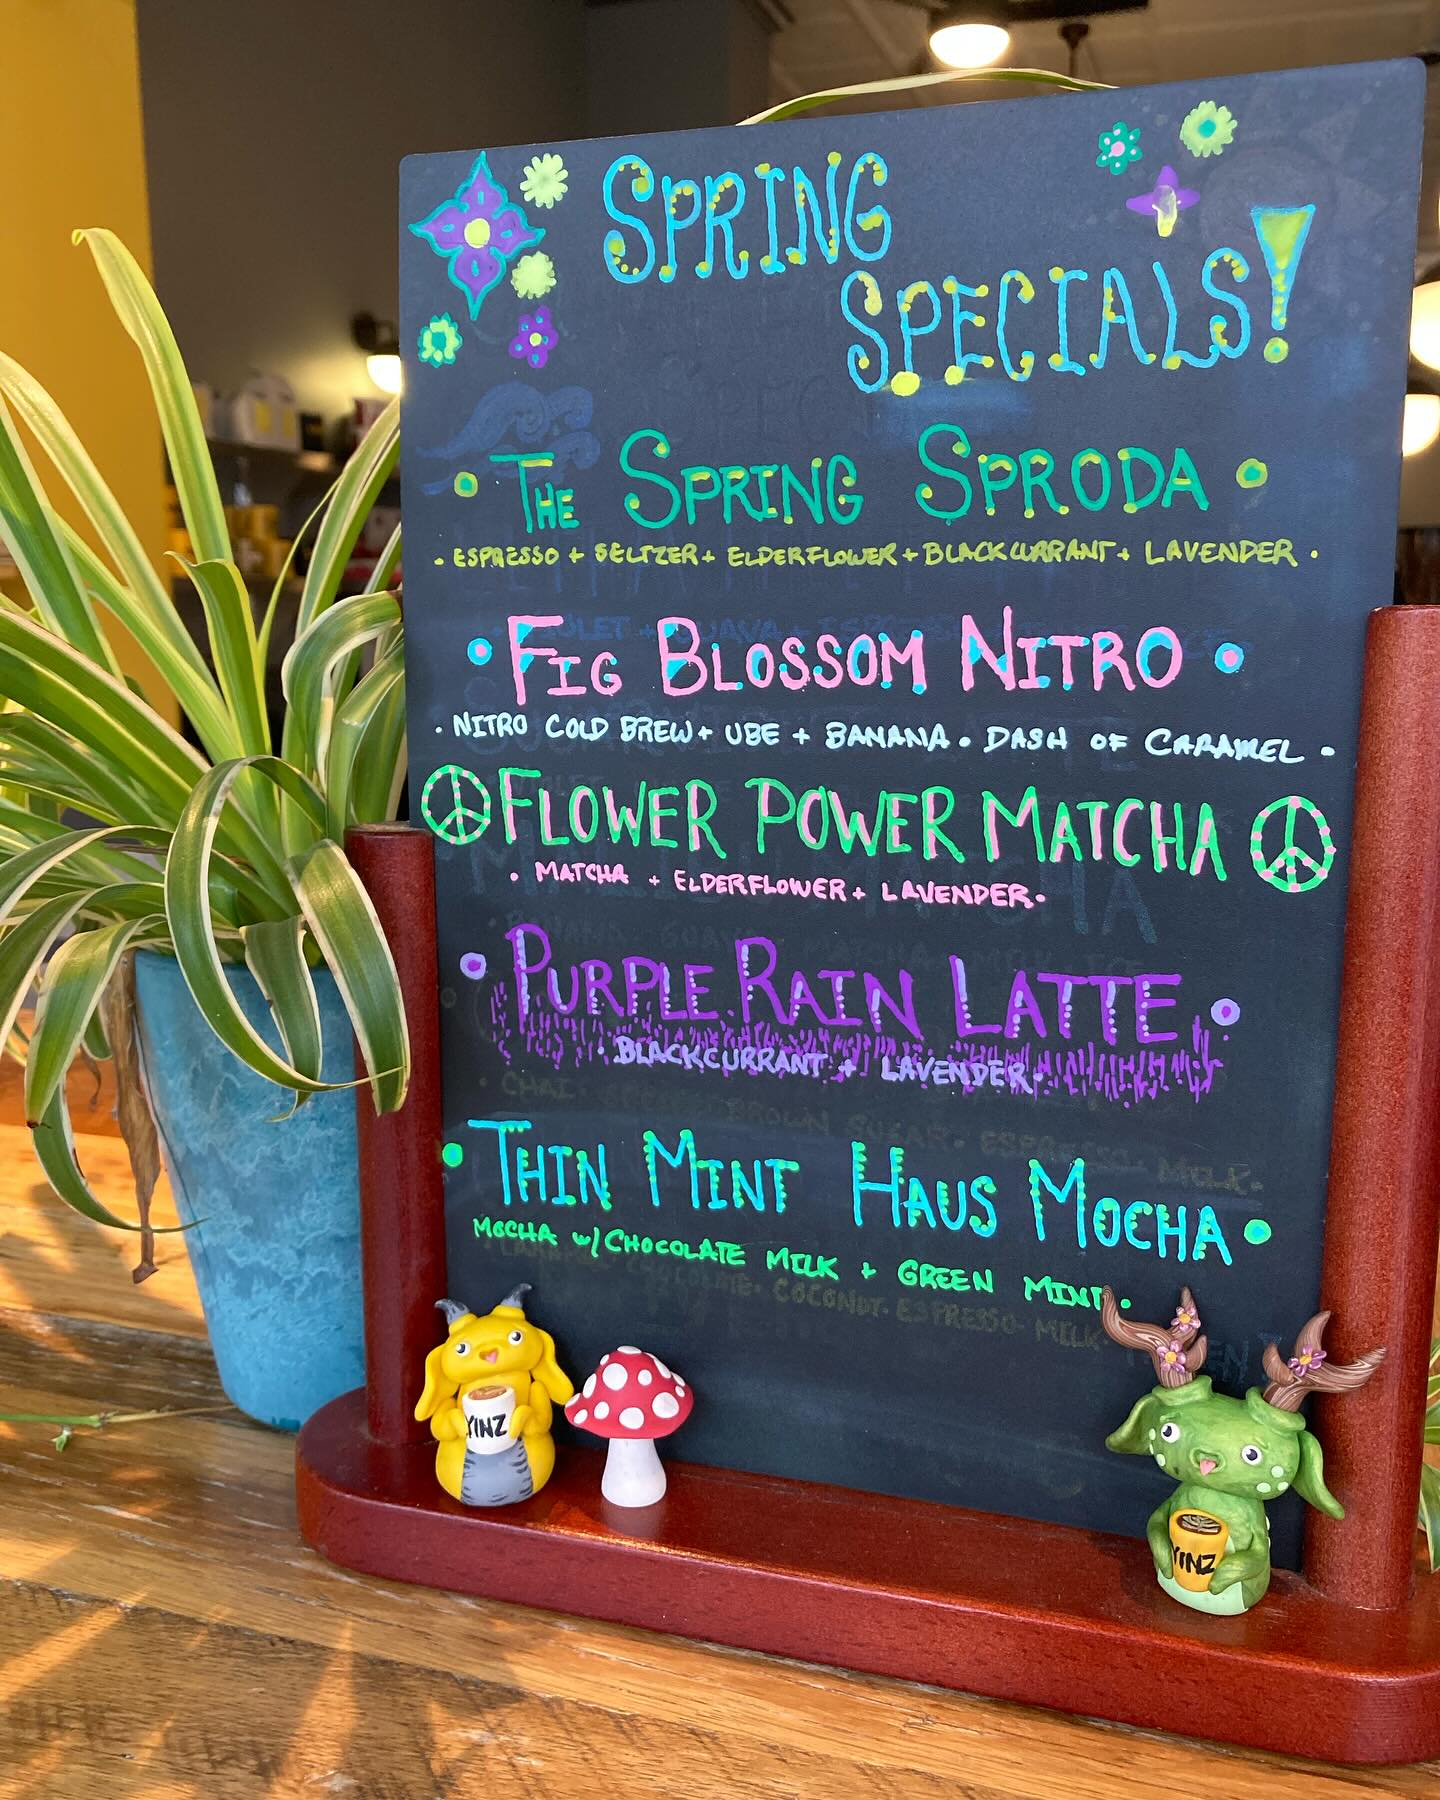 SPRING
SPECIALS!
• THE SPRING SPRODA •
• ESPRESSO + SELTZER + ELDERFLOWER + BLACKCURRANT + LAVENDER •
• FIG BLOSSOM NITRO •
• NITRO COLD BREW + UBE + BANANA • DASH OF CARAMEL •
FLOWER POWER MATCHA
• MATCHA + ELDERFLOWER + LAVENDER •
• PURPLE RAIN LATTE •
• BLACKCURRANT + LAVENDER •
• THIN MINT HAUS MOCHA •
MOCHA W/ CHOCOLATE MILK + GREEN MINT •
YINZ
YINZ